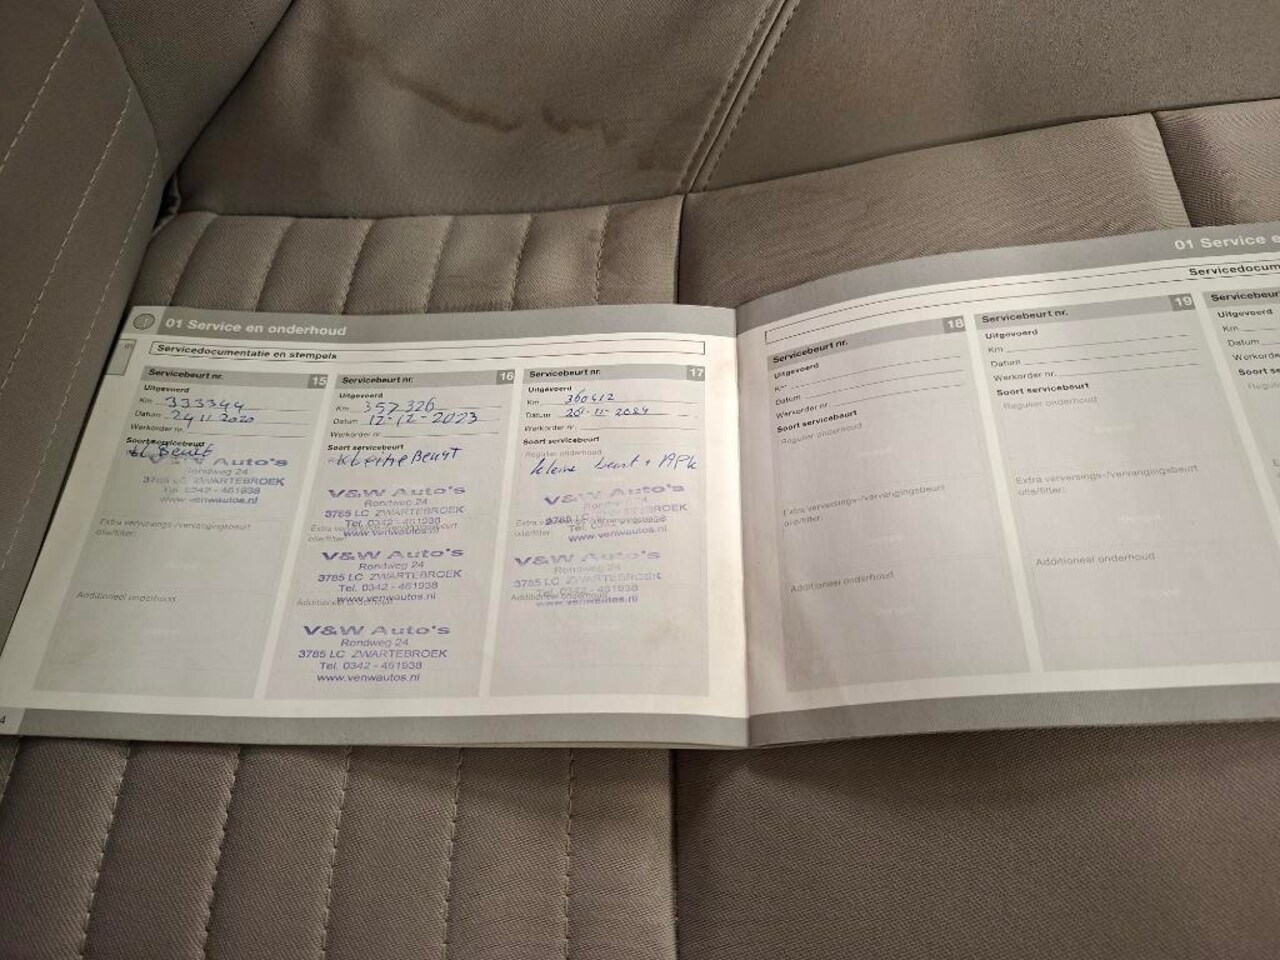 01 Service en onderhoud
Servicedocumentatie en stempels
Servicebeurt nr. 15
Uitgevoerd
Km 333344
Datum 24 11 2020
Werkorder nr.
Soort servicebeurt
kl Beurt
V&W Auto's
Rondweg 24
3785 LC ZWARTEBROEK
Tel. 0342 - 461938
www.venwautos.nl
Extra verversings-/vervangingsbeurt
olie/filter:
Additioneel onderhoud
Servicebeurt nr. 16
Uitgevoerd
Km 357326
Datum 12-12-2023
Werkorder nr.
Soort servicebeurt
Kleine Beurt
V&W Auto's
Rondweg 24
3785 LC ZWARTEBROEK
Tel. 0342 - 461938
www.venwautos.nl
V&W Auto's
Rondweg 24
3785 LC ZWARTEBROEK
Tel. 0342 - 461938
www.venwautos.nl
Additioneel onderhoud
V&W Auto's
Rondweg 24
3785 LC ZWARTEBROEK
Tel. 0342 - 461938
www.venwautos.nl
Servicebeurt nr. 17
Uitgevoerd
Km 360412
Datum 11-2024
Werkorder nr.
Soort servicebeurt
Regulier onderhoud
kleine beurt + APK
V&W Auto's
Rondweg 24
3785 LC ZWARTEBROEK
Tel. 0342 - 461938
www.venwautos.nl
V&W Auto's
Rondweg 24
3785 LC ZWARTEBROEK
Tel. 0342 - 461938
Additioneel onderhoud
www.venwautos.nl
4
01 Service e
Servicedocum
Servicebeurt nr. 18
Uitgevoerd
Km
Datum
Werkorder nr.
Soort servicebeurt
Regulier onderhoud
Extra verversings-/vervangingsbeurt
olie/filter:
Additioneel onderhoud
Servicebeurt nr. 19
Uitgevoerd
Km
Datum
Werkorder nr.
Soort servicebeurt
Regulier onderhoud
Extra verversings-/vervangingsbeurt
olie/filter:
Additioneel onderhoud
Servicebeurt
Uitgevoerd
Km
Datum
Werkorde
Soort serv